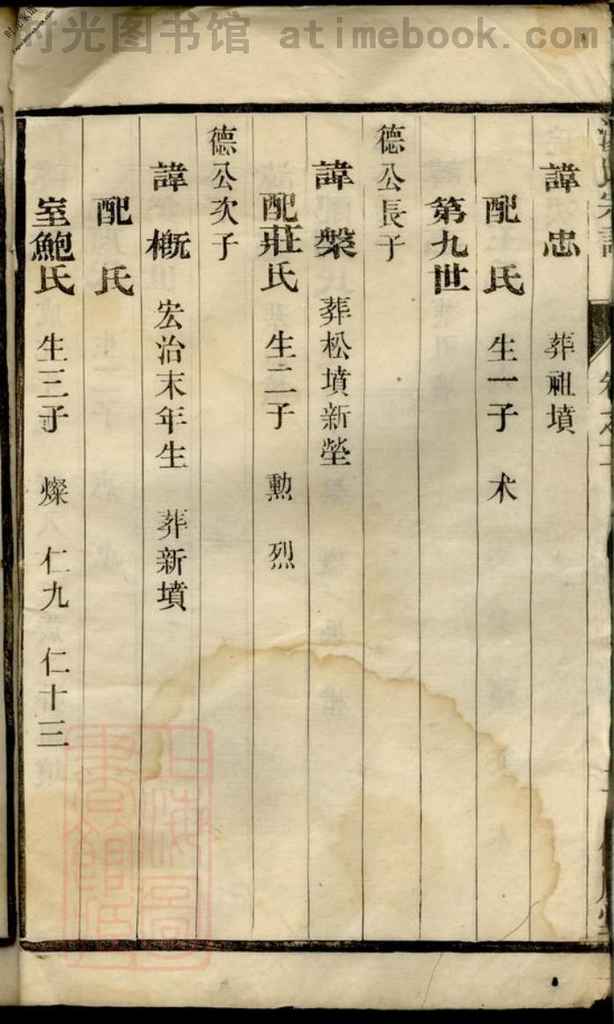 时光图书馆 atimebook.com
諱忠 葬祖墳
配 氏 生一子 术
第九世
德公長子
諱槃 葬松墳新塋
配莊氏 生二子 勲 烈
德公次子
諱概 宏治末年生 葬新墳
配 氏
室鮑氏 生三子 燦 仁九 仁十三